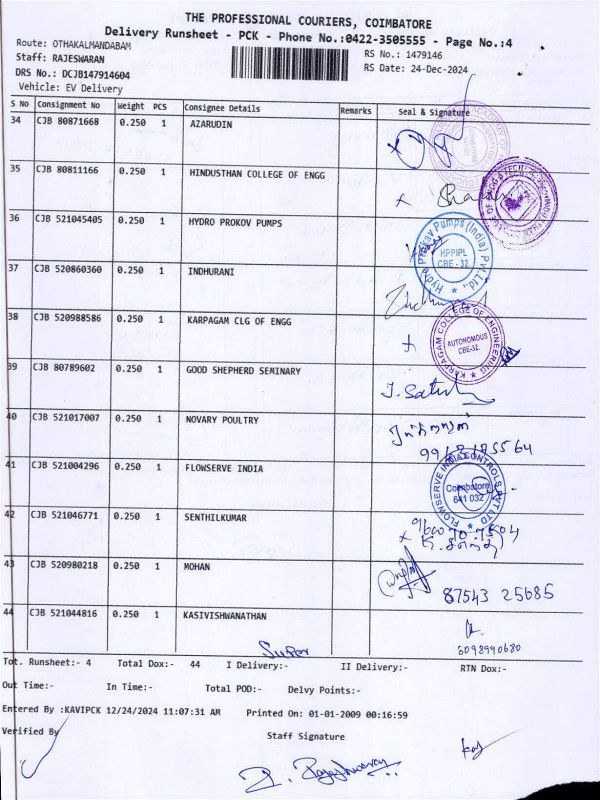 THE PROFESSIONAL COURIERS, COIMBATORE
Delivery Runsheet - PCK - Phone No.:0422-3505555 - Page No.:4
Route: OTHAKALMANDABAM
RS No.: 1479146
Staff: RAJESWARAN
RS Date: 24-Dec-2024
DRS No.: DCJB147914604
Vehicle: EV Delivery
S No Consignment No Weight PCS Consignee Details Remarks Seal & Signature
34 CJB 80871668 0.250 1 AZARUDIN
35 CJB 80811166 0.250 1 HINDUSTHAN COLLEGE OF ENGG
36 CJB 521045405 0.250 1 HYDRO PROKOV PUMPS
Hydro Prokav Pumps (India) Pvt. Ltd.,
HPPIPL
CBE - 32
37 CJB 520860360 0.250 1 INDHURANI
38 CJB 520988586 0.250 1 KARPAGAM CLG OF ENGG
KARPAGAM COLLEGE OF ENGINEERING
AUTONOMOUS
CBE-32.
39 CJB 80789602 0.250 1 GOOD SHEPHERD SEMINARY
40 CJB 521017007 0.250 1 NOVARY POULTRY
41 CJB 521004296 0.250 1 FLOWSERVE INDIA
FLOWSERVE INDIA CONTROLS PVT LTD
Coimbatore
641 032
42 CJB 521046771 0.250 1 SENTHILKUMAR
43 CJB 520980218 0.250 1 MOHAN
87543 25685
44 CJB 521044816 0.250 1 KASIVISHWANATHAN
6098990680
Tot. Runsheet:- 4 Total Dox:- 44 I Delivery:- II Delivery:- RTN Dox:-
Out Time:- In Time:- Total POD:- Delvy Points:-
Entered By :KAVIPCK 12/24/2024 11:07:31 AM Printed On: 01-01-2009 00:16:59
Verified By
Staff Signature